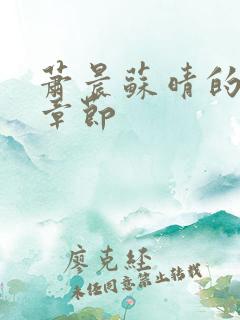 萧晨蘇晴的
章節
廖克经
未经同意禁止转载